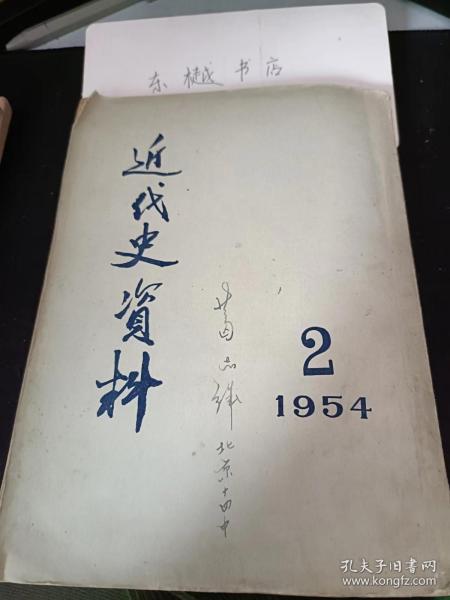 东樾书店
近代史資料
北京十四中
2
1954
孔夫子旧书网
www.kongfz.com